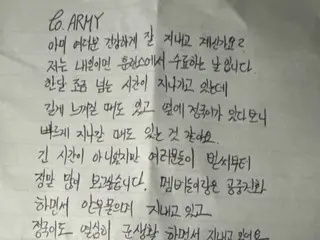 to. ARMY
아미 여러분 건강하게 잘 지내고 계신가요?
저는 내일이면 훈련소에서 수료하는 날 입니다
한달 조금 넘는 시간이 지나가고 있는데
길게 느껴질 때도 있고 옆에 정국이가 있다보니
빠르게 지나갈 때도 있는 것 같아요.
긴 시간이 아니였지만 여러분들이 벌써부터
정말 많이 보고싶습니다. 멤버들이랑은 공중전화
하면서 안부물으며 지내고 있고
정국이도 열심히 군생활 하면서 지내고 있어요.